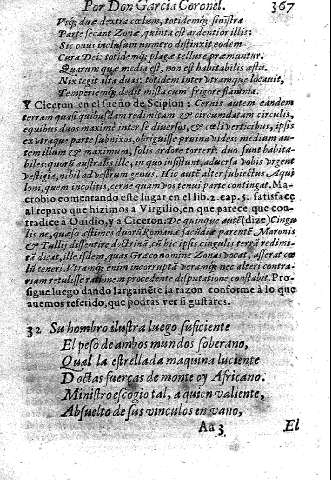 Por Don Garcia Coronel. 367
Vtq; duæ dextra cœlum, totidemq; sinistra
Parte secant Zonæ, quinta est ardentior illis:
Sic onus inclusum numero distinxit eodem
Cura Dei, totidemq; plagæ tellure præmuntur.
Quarum quæ media est, non est habitabilis æstu.
Nix tegit alta duas: totidem inter vtramque locauit,
Temperiemq; dedit mista cum frigore flamma.
Y Ciceron en el sueño de Scipion: Cernis autem eandem
terram quasi quibusdam redimitam & circumdatam circulis,
equibus duos maxime inter se diuersos, & cœli verticibus, ipsis
ex vtraque parte subnixos, obriguisse pruina vides: medium au-
tem illum & maximum, solis ardore torreri, duo sunt habita-
biles: quorũ australis ille, in quo insistunt, aduersa vobis vrgent
vestigia, nihil ad vestrum genus. Hic autẽ alter subiectus Aqui
loni, quem incolitis, cerne quam vos tenui parte contingat. Ma-
crobio comentando este lugar en el lib. 2. cap. 5. satisface
al reparo que hizimos a Virgilio, en que parece que con-
tradice à Ouidio, y a Ciceron. De quinque autẽ (dize) Cingu
lis ne, quæso æstimes duorũ Romanæ facũdiæ parentũ Maronis
& Tullij dissentire doctrinã, cũ hic ipsis cingulis terrã redimi-
tã dicat, ille isdem, quas Græco nomine Zonas vocat, asserat cœ
lũ teneri. Vtramq; enim incorruptã veramq; nec alteri contra-
riam retulisse rationem procedente disputatione constabit. Pro-
sigue luego dando largamẽte la razon conforme à lo que
auemos referido, que podras ver si gustares.
32 Su hombro ilustra luego suficiente
El peso de ambos mundos soberano,
Qual la estrellada maquina luciente
Doctas fuerças de monte oy Africano.
Ministro escogio tal, a quien valiente,
Absuelto de sus vinculos en vano,
Aa 3 El